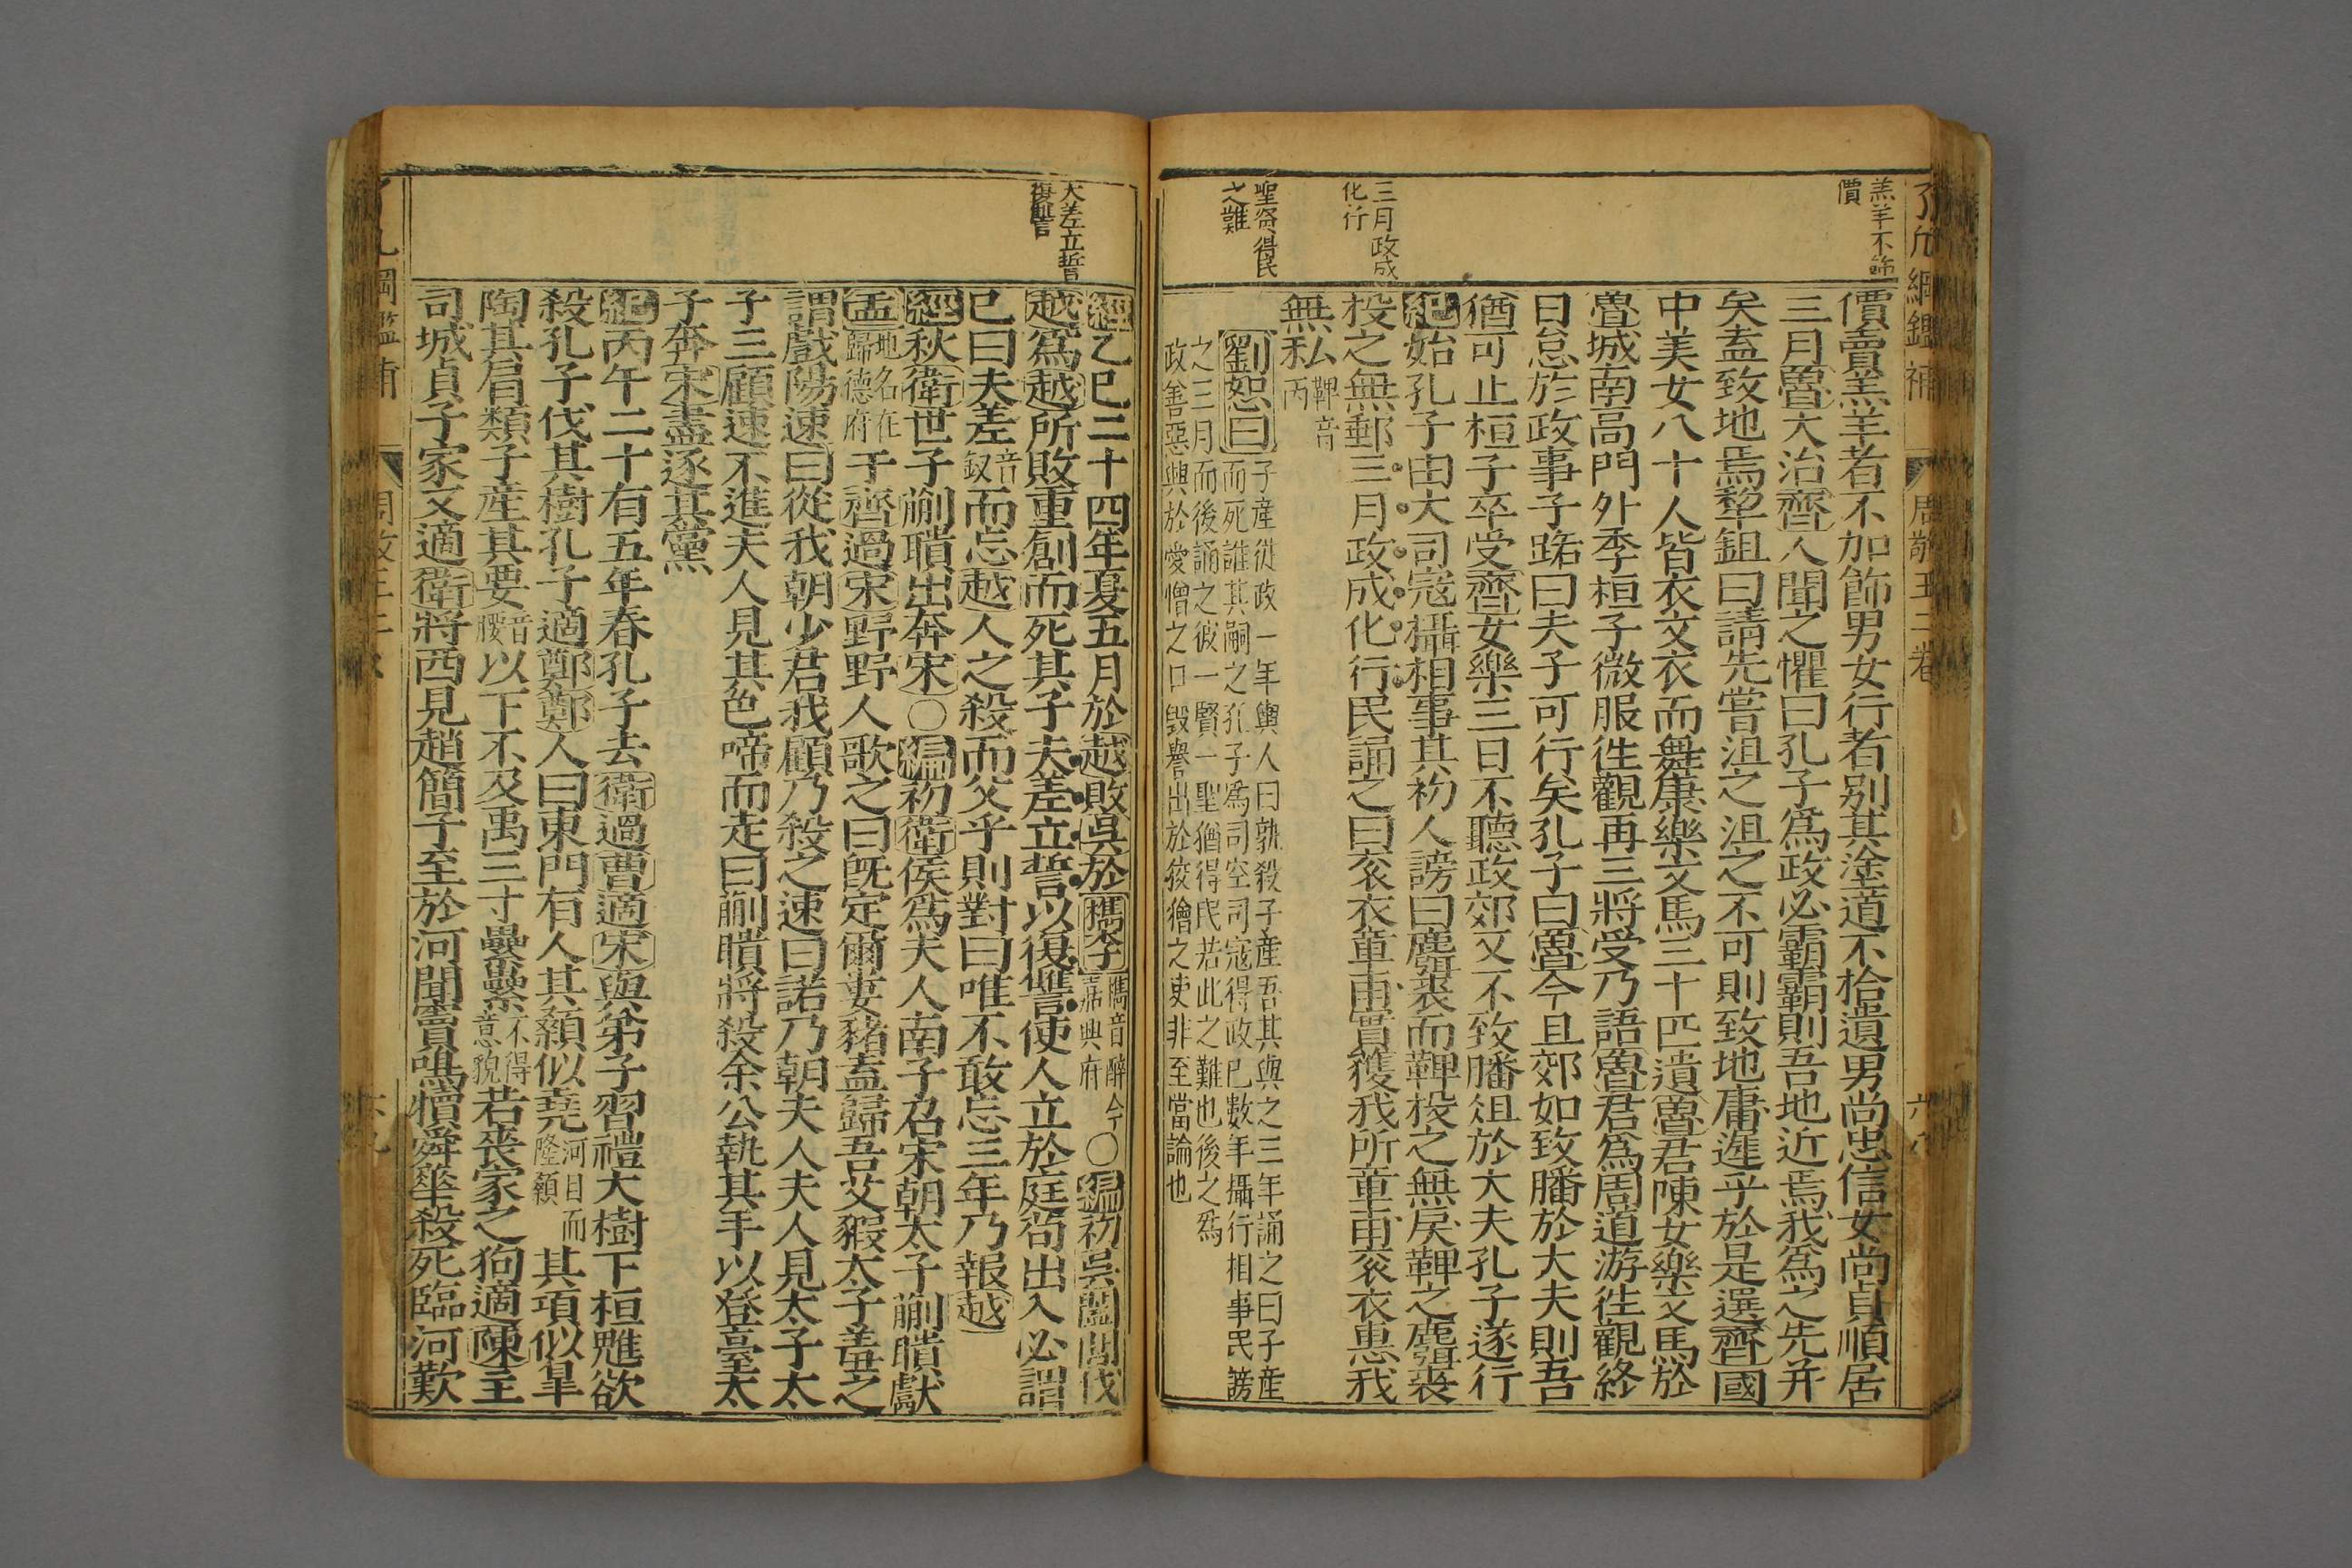 了凡綱鑑補
周敬王三卷
羔羊不飾
價
三月政成
化行
聖賢得民
之難
價賣羔羊者不加飾男女行者別其塗道不拾遺男尚忠信女尚貞順居
三月魯大治齊人聞之懼曰孔子為政必霸霸則吾地近焉我為之先并
矣盍致地焉犂鉏曰請先嘗沮之沮之不可則致地庸遲乎於是選齊國
中美女八十人皆衣文衣而舞康樂文馬三十匹遺魯君陳女樂文馬於
魯城南高門外季桓子微服徃觀再三將受乃語魯君為周道游徃觀終
日怠於政事子路曰夫子可行矣孔子曰魯今且郊如致膰於大夫則吾
猶可止桓子卒受齊女樂三日不聽政郊又不致膰俎於大夫孔子遂行
紀始孔子由大司寇攝相事其初人謗曰麛裘而鞞投之無戾鞞之麛裘
投之無郵三月政成化行民誦之曰衮衣章甫實獲我所章甫衮衣惠我
無私鞞音
丙
劉恕曰子産從政一年輿人曰孰殺子産吾其與之三年誦之曰子産
而死誰其嗣之孔子為司空司寇得政巳數年攝行相事民謗
之三月而後誦之彼一賢一聖猶得民若此之難也後之爲
政善惡興於愛憎之口毀譽出於狡獪之吏非至當論也
夫差立誓
復讐
經乙巳二十四年夏五月於越敗吳於檇李檇音醉今
嘉興府〇編初吳闔閭伐
越為越所敗重創而死其子夫差立誓以復讐使人立於庭苟出入必謂
己曰夫差音
釵而忘越人之殺而父乎則對曰唯不敢忘三年乃報越
經秋衛世子蒯聵出奔宋〇編初衛侯為夫人南子召宋朝太子蒯聵獻
盂地名在
歸德府于齊過宋野野人歌之曰旣定爾婁豬盍歸吾艾豭太子羞之
謂戲陽速曰從我朝少君我顧乃殺之速曰諾乃朝夫人夫人見太子太
子三顧速不進夫人見其色啼而走曰蒯聵將殺余公執其手以登臺太
子奔宋盡逐其黨
紀丙午二十有五年春孔子去衛過曹適宋與弟子習禮大樹下桓魋欲
殺孔子伐其樹孔子適鄭鄭人曰東門有人其顙似堯河目而
隆顙其項似臯
陶其肩類子產其要音
腰以下不及禹三寸纍纍不得
意貌若喪家之狗適陳主
司城貞子家又適衛將西見趙簡子至於河聞竇鳴犢舜華殺死臨河歎